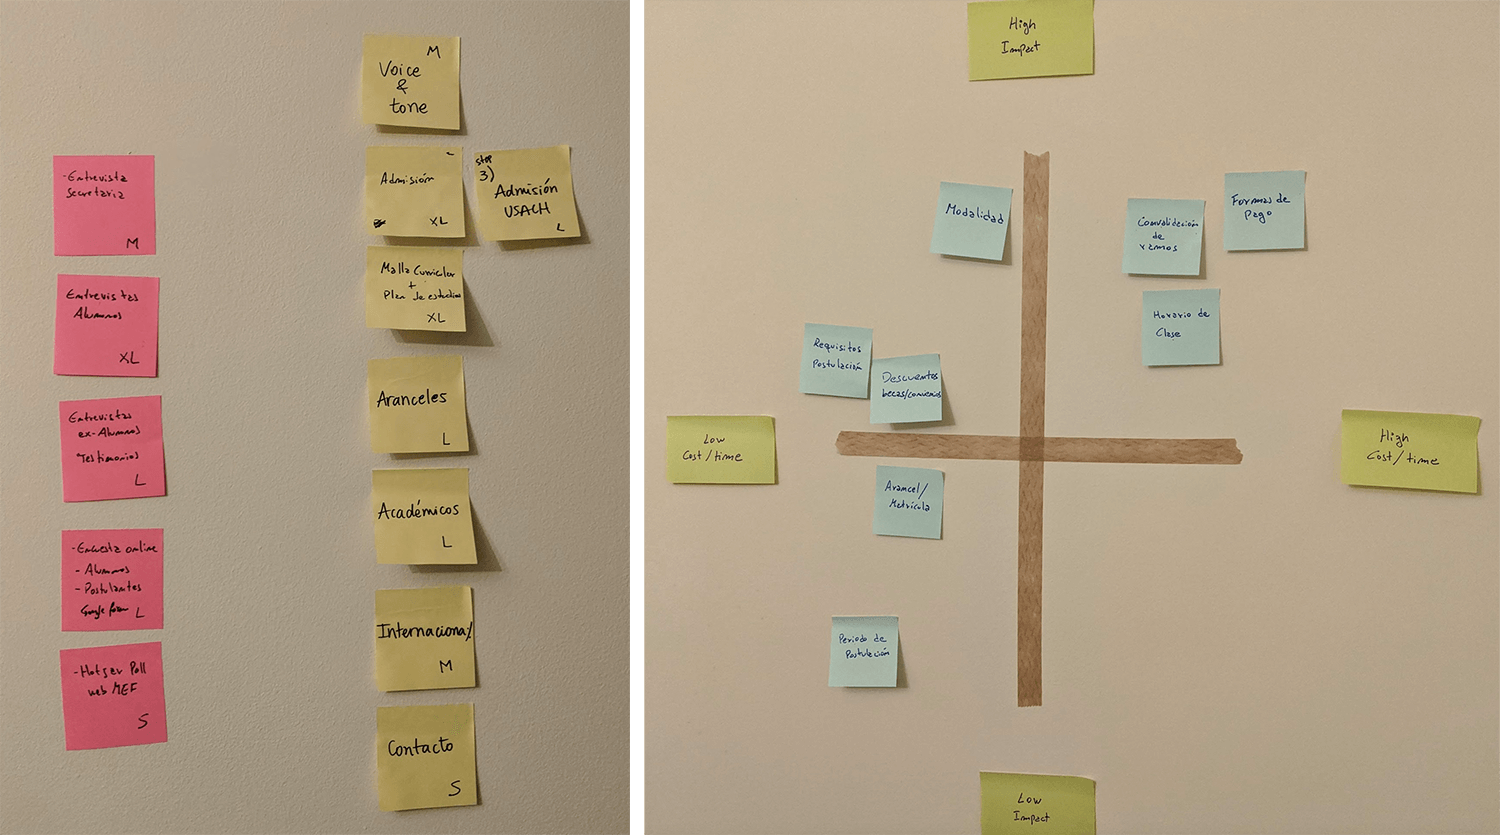 - Entrevista
Secretaria
M
Entrevistas
Alumnos
XL
Entrevistas
ex-Alumnos
Testimonios
L
- Encuesta online
- Alumnos
- Postulantes
Google form
L
- Hotjar Poll
web MEF
S
M
Voice
&
tone
Admisión
XL
step
3)
Admisión
USACH
L
Malla Curricular
+
Plan de estudios
XL
Aranceles
L
Académicos
L
Internacional
M
Contacto
S
High
Impact
Modalidad
Convalidación
de
ramos
Formas de
pago
Horario de
Clase
Requisitos
Postulación
Descuentos
becas/convenios
Low
Cost/time
High
Cost/time
Arancel/
Matrícula
Periodo de
Postulación
Low
Impact